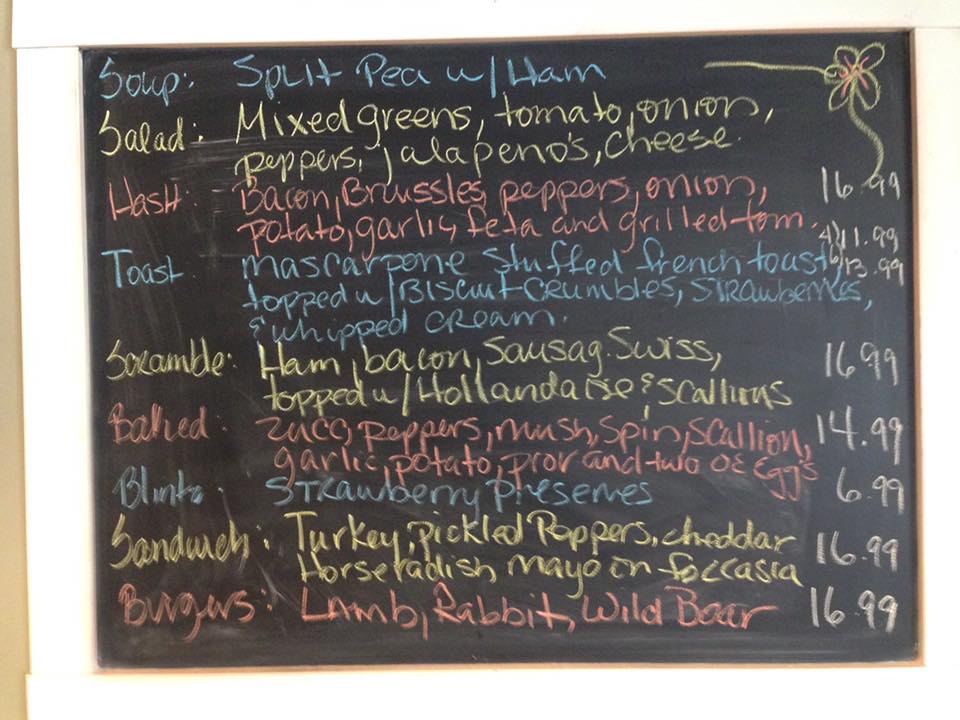 Soup: Split Pea w/Ham
Salad: Mixed greens, tomato, onion,
peppers, jalapeno's, cheese.
Hash: Bacon, Brussles, peppers, onion, 16.99
potato, garlic, feta and grilled tom.
Toast mascarpone stuffed french toast 4/11.99
6/13.99
topped w/Biscuit crumbles, strawberries,
& whipped cream.
Scramble: Ham, bacon, sausag. Swiss, 16.99
topped w/Hollandaise & scallions
Baked: zucc, peppers, mush, spin, scallion, 14.99
garlic, potato, prov and two OE Egg's
Blintz: Strawberry preserves 6.99
Sandwich: Turkey, pickled Peppers, cheddar 16.99
Horseradish mayo on foccasia
Burgers: Lamb, Rabbit, Wild Boar 16.99